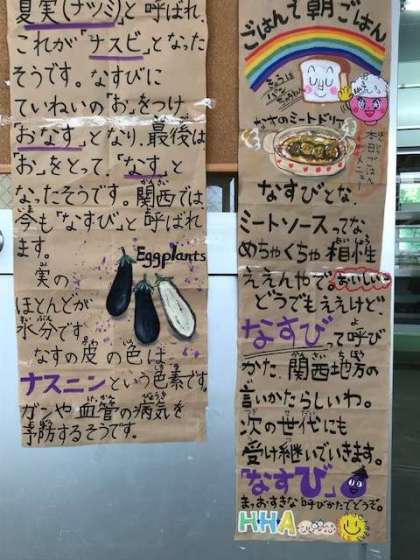 ごはんで朝ごはん
なすびとな、
ミートソースってな
めちゃくちゃ相性
ええんやで おいしい
どうでもええけど
なすびって呼び
かた、関西地方の
言いかたらしいわ。
次の世代にも
受け継いでいきます。
「なすび」
まっおすきな呼びかたでどうぞ。
HHA
夏実(ナツミ)と呼ばれ、
これが「ナスビ」となった
そうです。なすびに
ていねいの「お」をつけ
おなすとなり、最後は
「お」をとって、「なす」と
なったそうです。関西では、
今も「なすび」と呼ばれ
ます。
Eggplants
実の
ほとんどが
水分です。
なすの皮の色は、
ナスニンという色素です。
ガンや血管の病気を
予防するそうです。